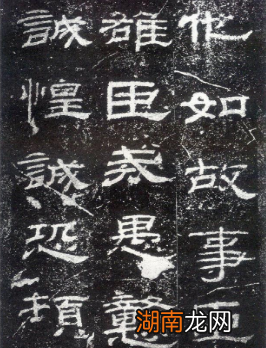 他如故事臣
雄臣戒愚戇
誠惶誠恐頓
湖南龙网